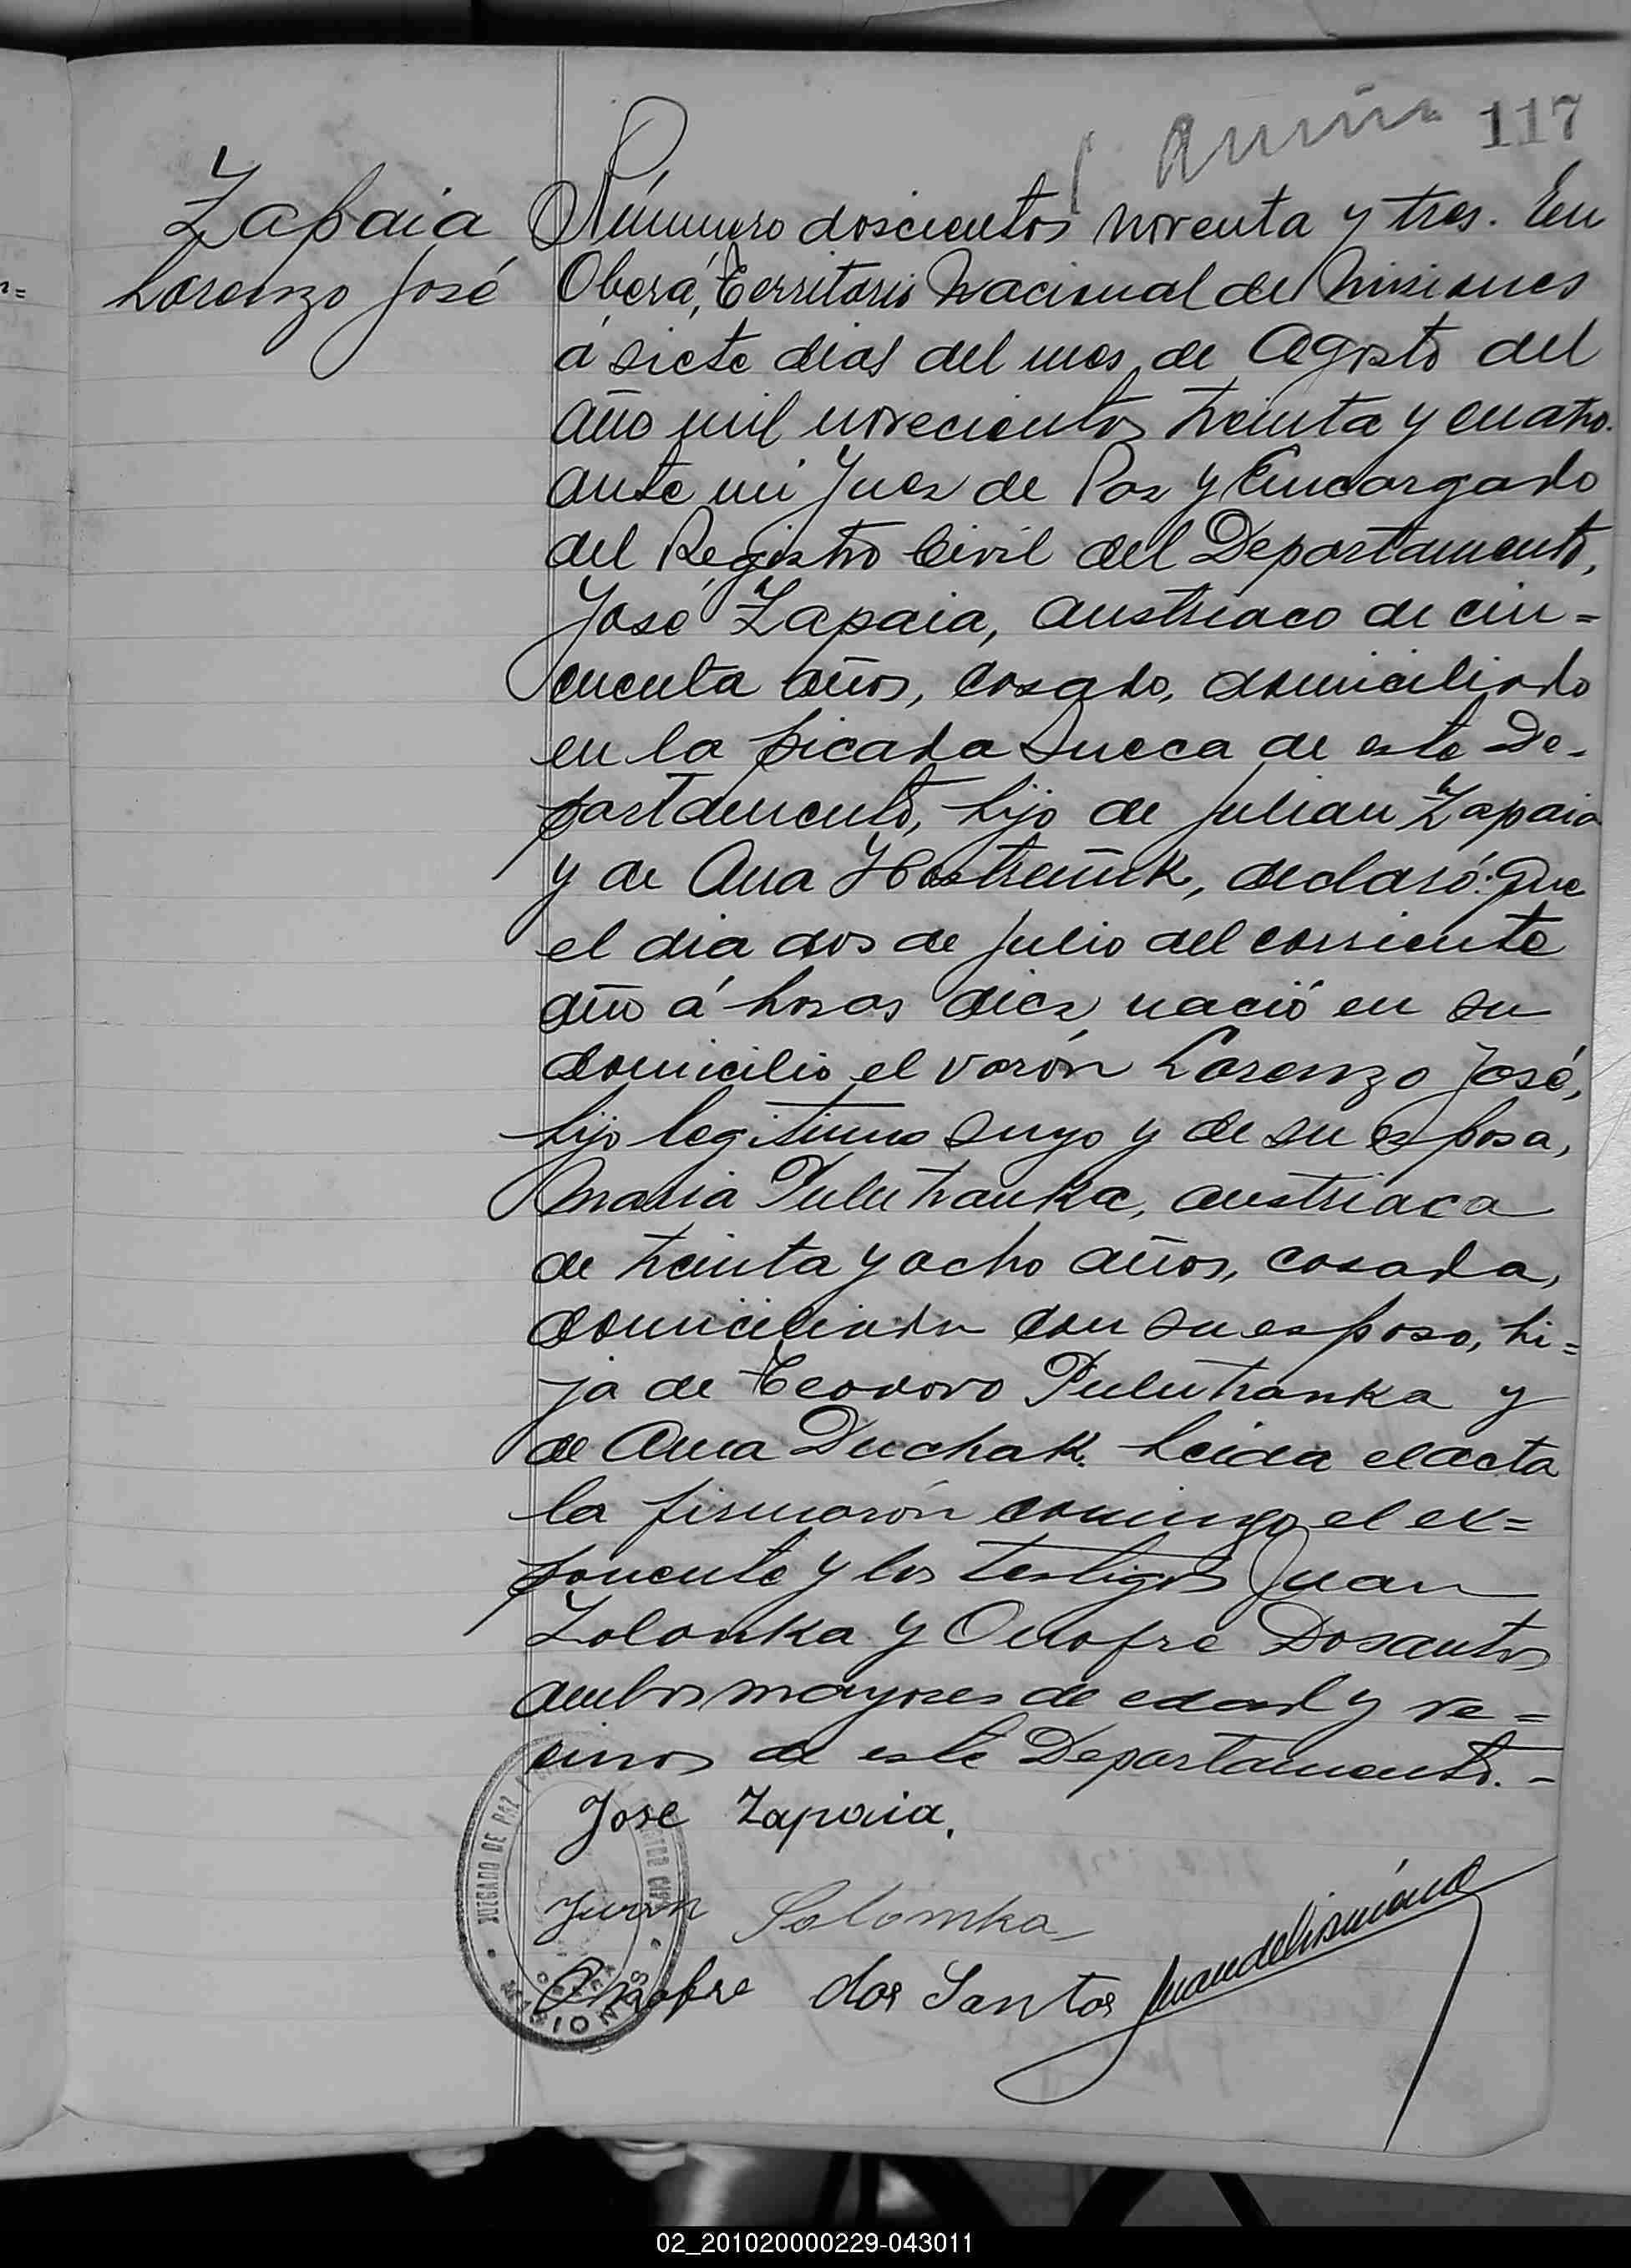 117
Zapaia
Lorenzo José
Número doscientos noventa y tres. En
Oberá, Territorio Nacional de Misiones
á siete dias del mes de Agosto del
año mil novecientos treinta y cuatro.
ante mi Juez de Paz y Encargado
del Registro Civil del Departamento,
José Zapaia, austriaco de cin=
cuenta años, casado, domiciliado
en la picada Sueca de este De-
partamento, hijo de Julian Zapaia
y de Ana declaró: Que
el dia dos de Julio del corriente
año á horas diez, nació en su
domicilio el varón Lorenzo José,
hijo legitimo suyo y de su esposa,
Maria Pulutranka, austriaca
de treinta y ocho años, casada,
domiciliada con su esposo, hi=
ja de Teodoro Pulutranka y
de Ana Duchak. Leida el acta
la firmarón conmigo el ex=
ponente y los testigos Juan
Zolonka y Onofre Dosantos
ambos mayores de edad y ve=
cinos de este Departamento.-
Jose Zapaia.
Juan Solomka
Onofre dos Santos
JUZGADO DE PAZ
MISIONES
02_201020000229-043011